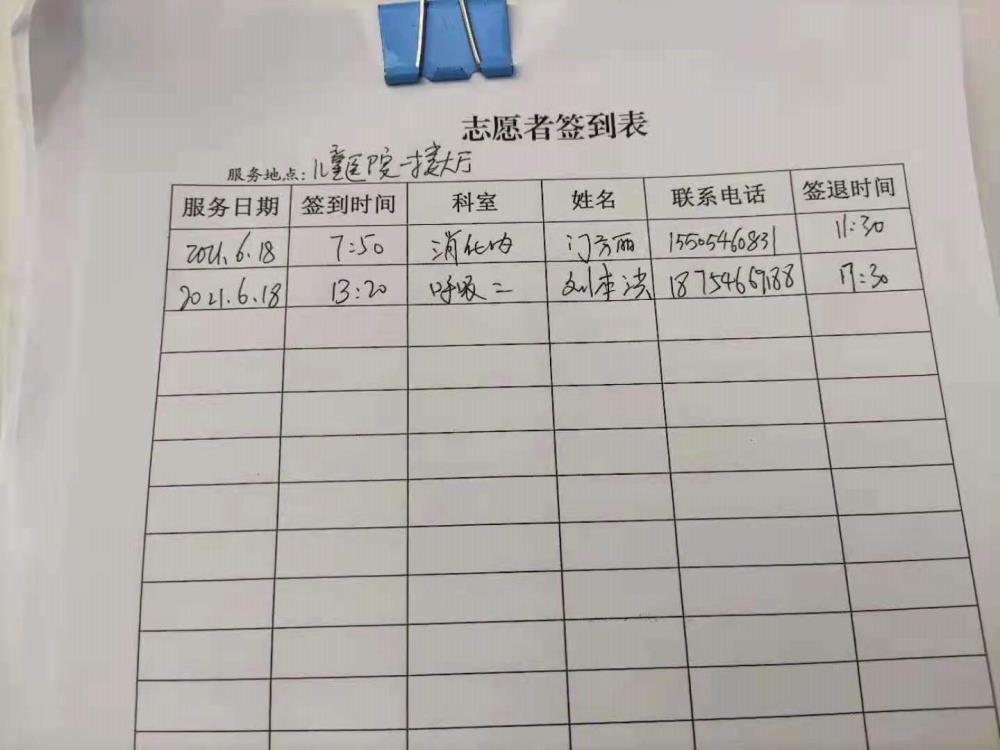 志愿者签到表
服务地点:儿童医院一楼大厅
服务日期 签到时间 科室 姓名 联系电话 签退时间
2021.6.18 7:50 消化内 门方丽 15505460831 11:30
2021.6.18 13:20 呼吸二 刘本洪 18754669188 17:30